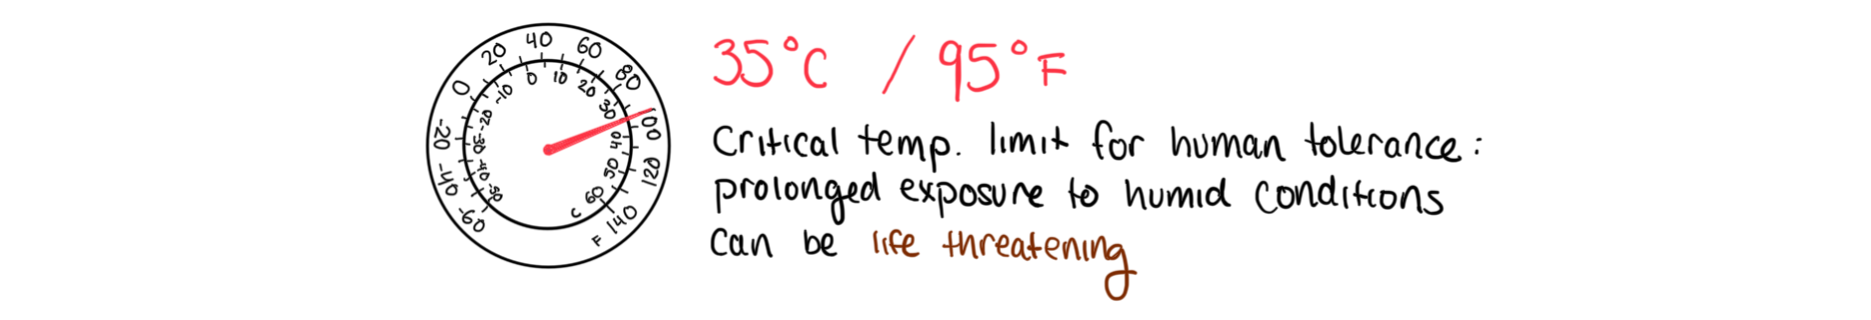 -60
-40
-20
0
20
40
60
80
100
120
140
F
-50
-40
-30
-20
-10
0
10
20
30
40
50
60
C
35°C / 95°F
Critical temp. limit for human tolerance:
prolonged exposure to humid conditions
can be life threatening